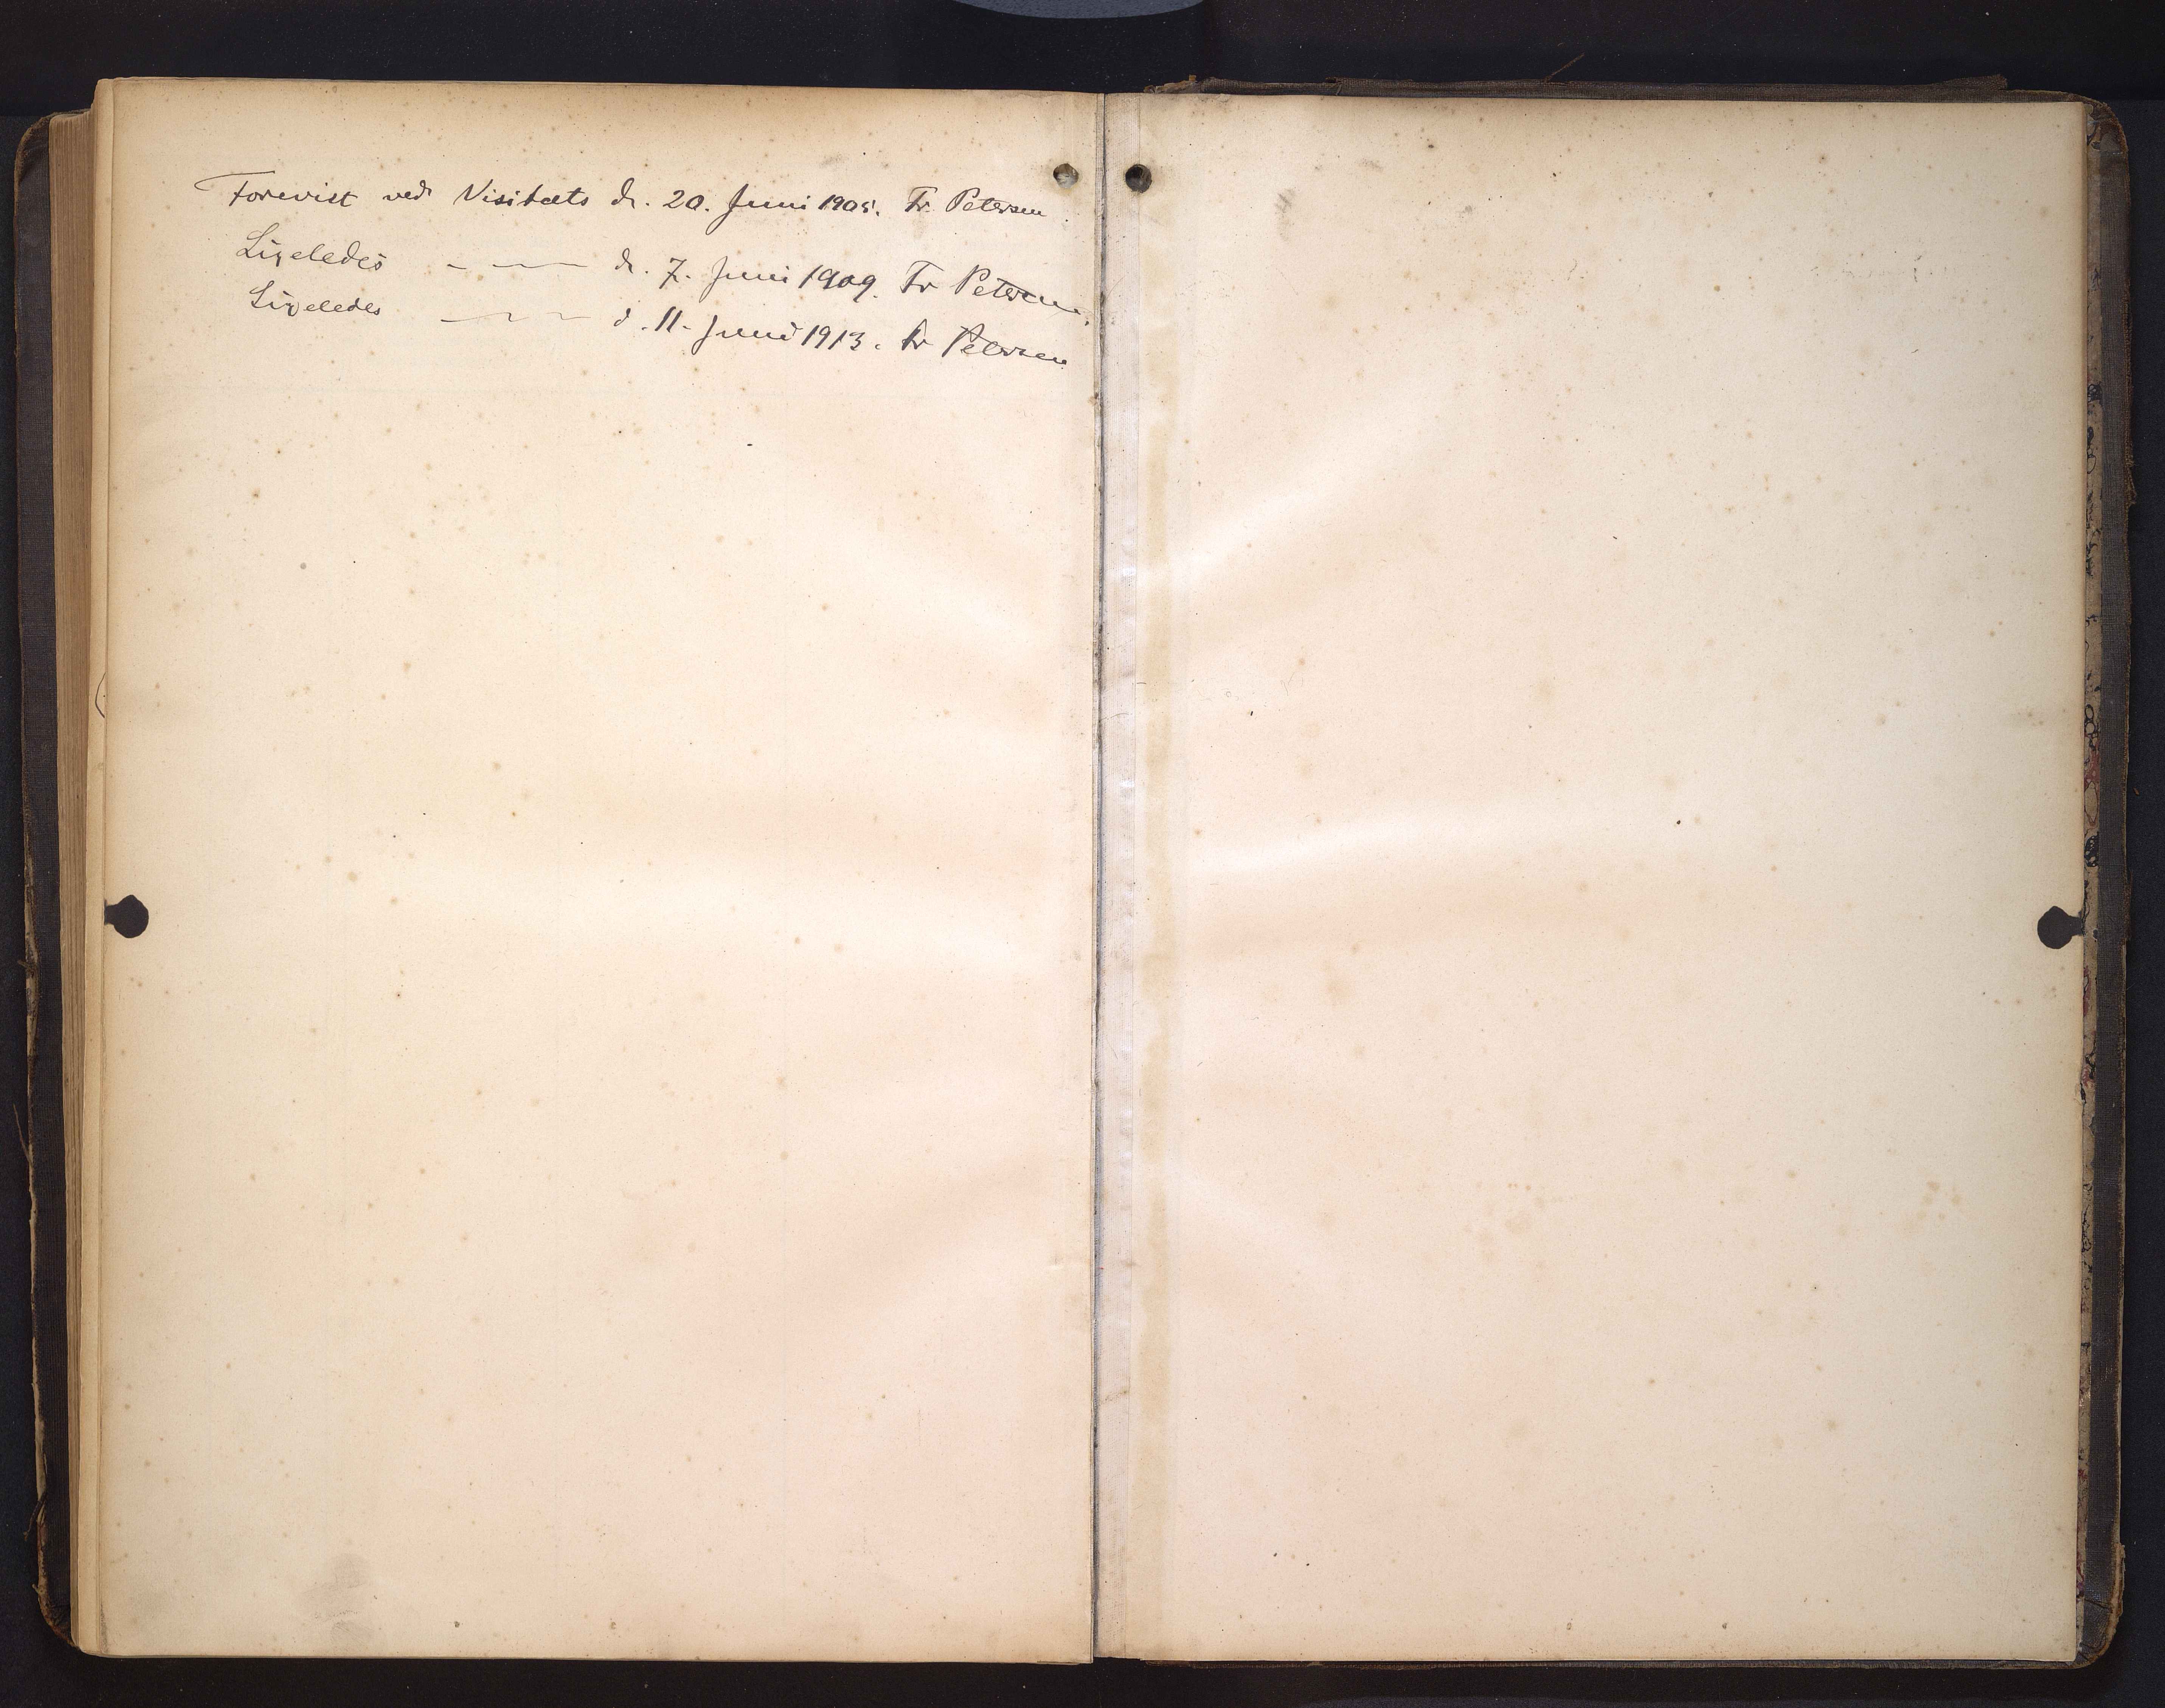 Forevist ved Visitats d. 20. Juni 1905. Fr Petersen.
Ligeledes - — d. 7. Juni 1909. Fr Petersen.
Ligeledes — - - d. 11. Juni 1913. Fr Petersen